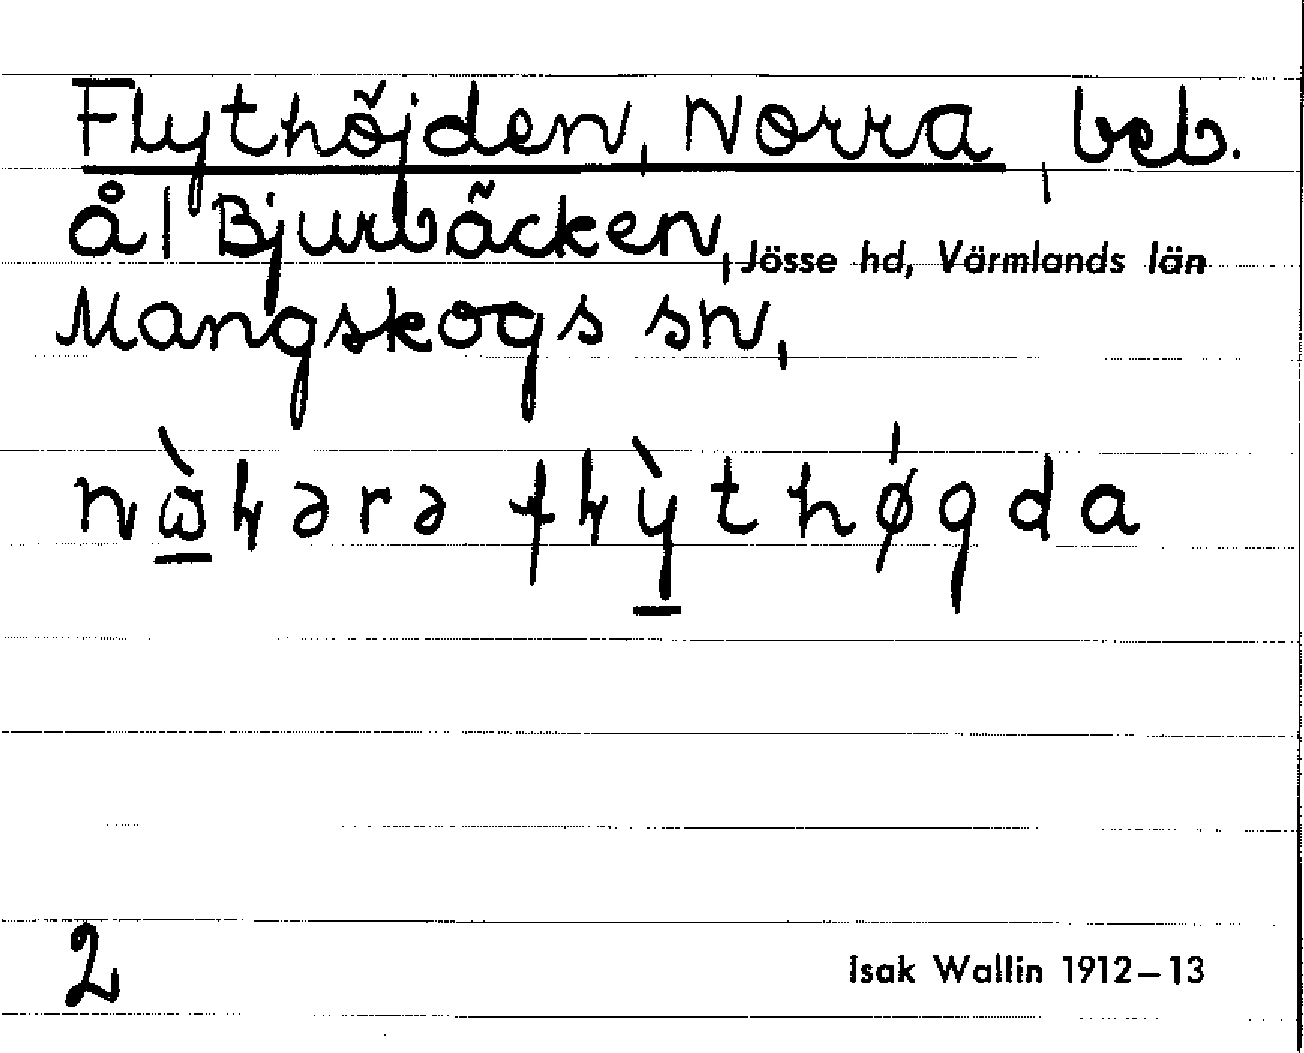 Flythöjden, Norra, beb.
å l Bjurbäcken, Jösse hd, Värmlands län
Mangskogs sn,
2
Isak Wallin 1912–13